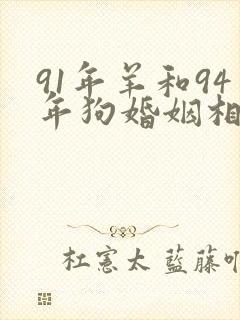 91年羊和94
年狗婚姻相
杜憲太 藍藤